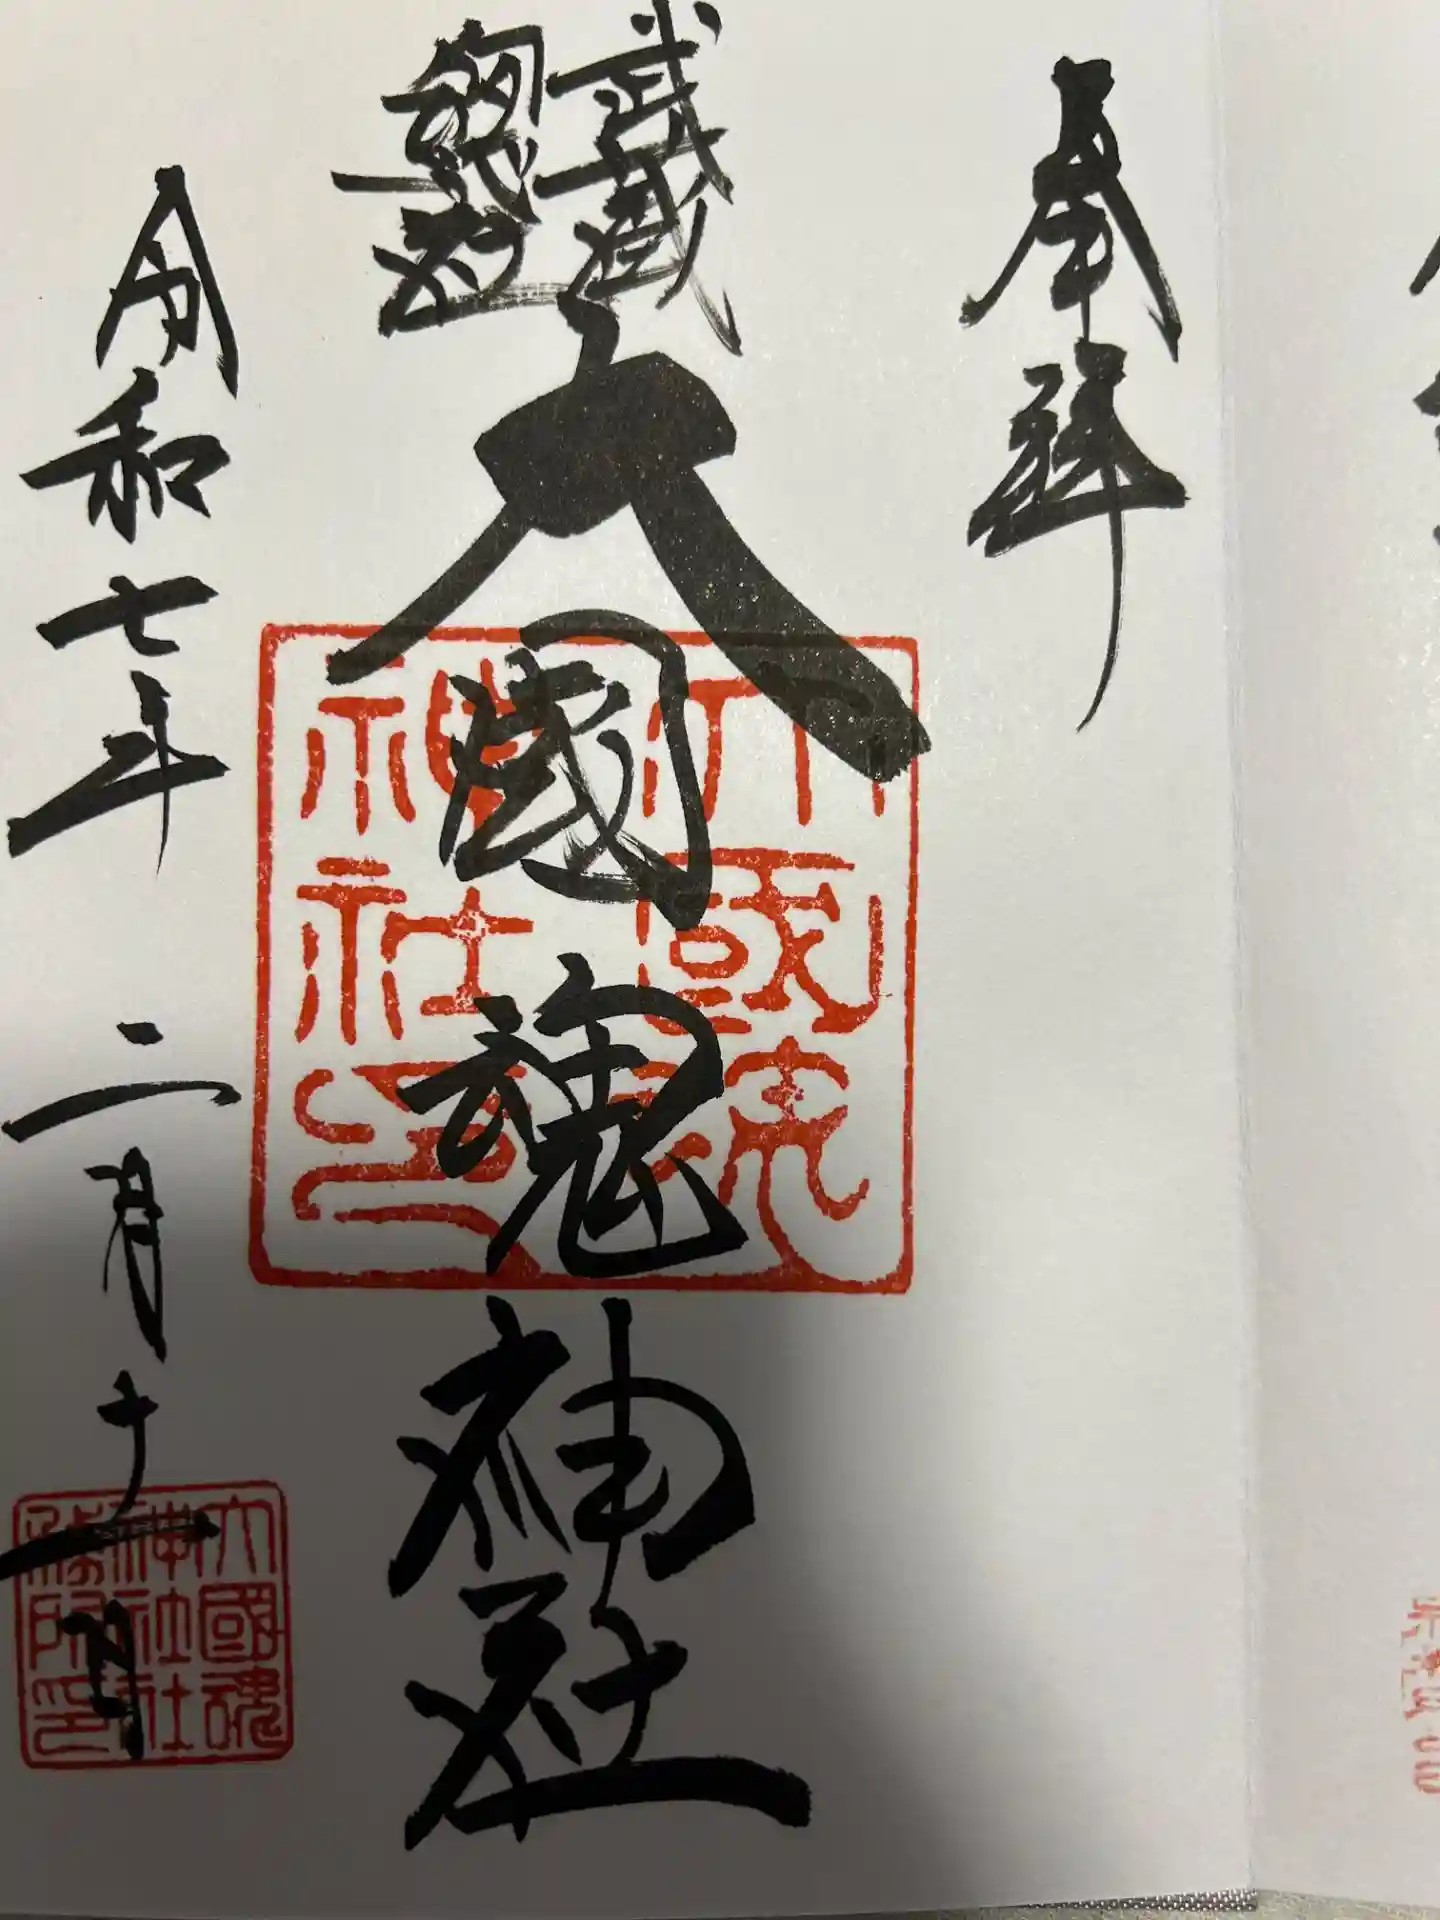 奉拝
武蔵
総社
大國魂神社
令和七年二月十一日
大國魂
神社印
大國魂
神社社
務所印